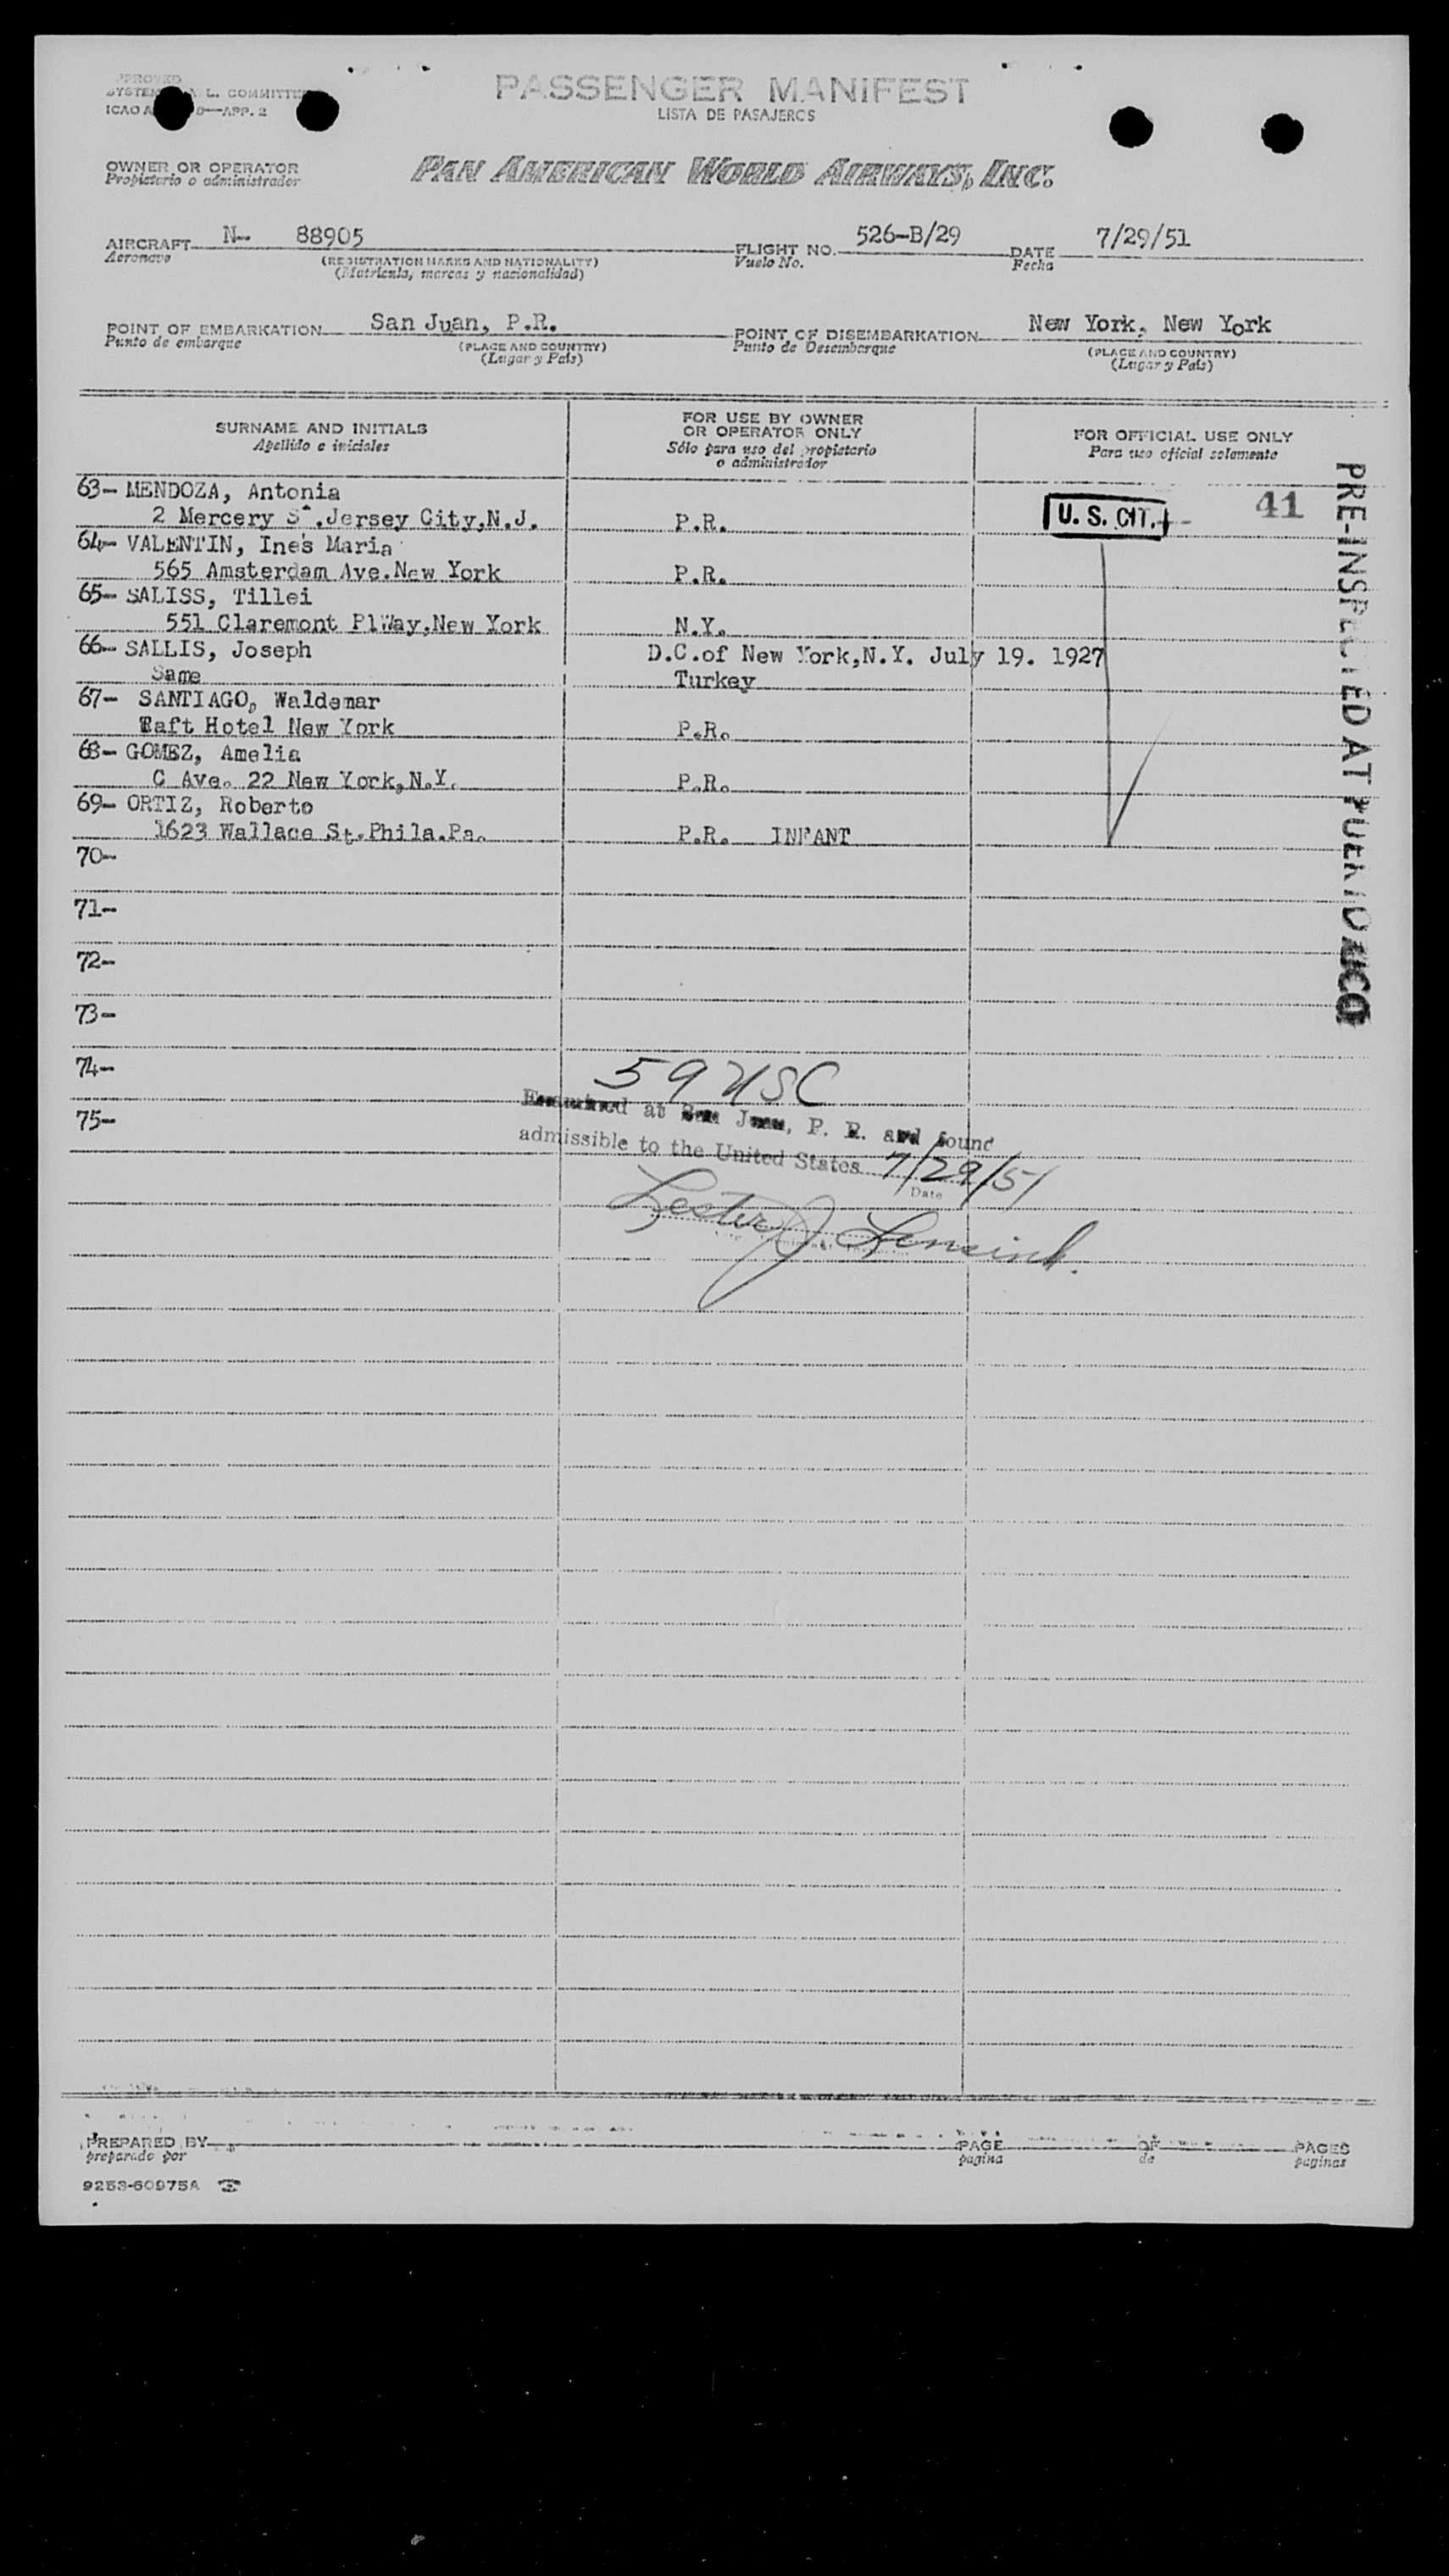 PASSENGER MANIFEST
LISTA DE PASAJEROS
APPROVED
L. COMMITTEE
ICAO
APP. 2
OWNER OR OPERATOR
Propietario o administrador
PAN AMERICAN WORLD AIRWAYS, INC.
AIRCRAFT N- 88905 FLIGHT NO. 526-B/29 DATE 7/29/51
Aeronave (REGISTRATION MARKS AND NATIONALITY) Vuelo No. Fecha
(Matrícula, marcas y nacionalidad)
POINT OF EMBARKATION San Juan, P.R. POINT OF DISEMBARKATION New York, New York
Punto de embarque (PLACE AND COUNTRY) Punto de Desembarque (PLACE AND COUNTRY)
(Lugar y País) (Lugar y País)
SURNAME AND INITIALS
Apellido e iniciales
FOR USE BY OWNER
OR OPERATOR ONLY
Sólo para uso del propietario
o administrador
FOR OFFICIAL USE ONLY
Para uso oficial solamente
63- MENDOZA, Antonia
2 Mercery St.Jersey City,N.J. P.R. U. S. CIT. 41
64- VALENTIN, Ines Maria
565 Amsterdam Ave.New York P.R.
65- SALISS, Tillei
551 Claremont PlWay,New York N.Y.
66- SALLIS, Joseph D.C.of New York,N.Y. July 19. 1927
Same Turkey
67- SANTIAGO, Waldemar
Taft Hotel New York P.R.
68- GOMEZ, Amelia
C Ave. 22 New York,N.Y. P.R.
69- ORTIZ, Roberto
1623 Wallace St.Phila.Pa. P.R. INFANT
70-
71-
72-
73-
74-
75-
PRE-INSPECTED AT PUERTO RICO
59 USC
Examined at San Juan, P. R. and found
admissible to the United States 7/29/51
Date
Lester J
PREPARED BY PAGE OF PAGES
preparado por pagina de paginas
9253-60975A